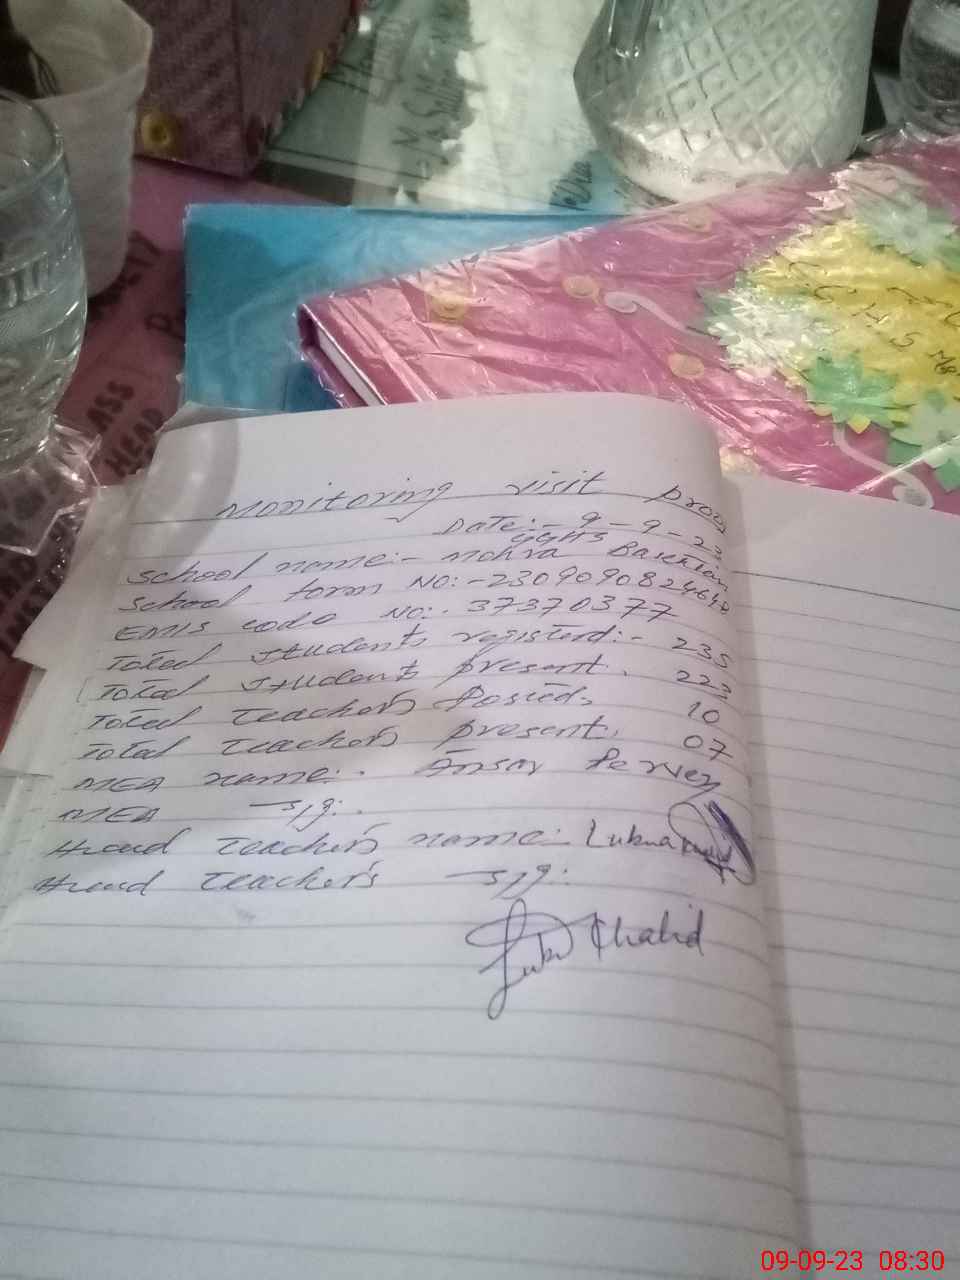 Monitoring visit proof
Date:- 9-9-23
GGHS
School name:- Mohra
School form No:-
EMIS code No:. 37370377
Total students registerd:- 235
Total students present. 223
Total Teachers Posted. 10
Total Teachers present. 07
MEA name:. Ansar Pervez
MEA sig:.
Head Teacher's name:- Lubna Khalid
Head Teacher's sig:.
Khalid
CLASS
HEAD
09-09-23 08:30